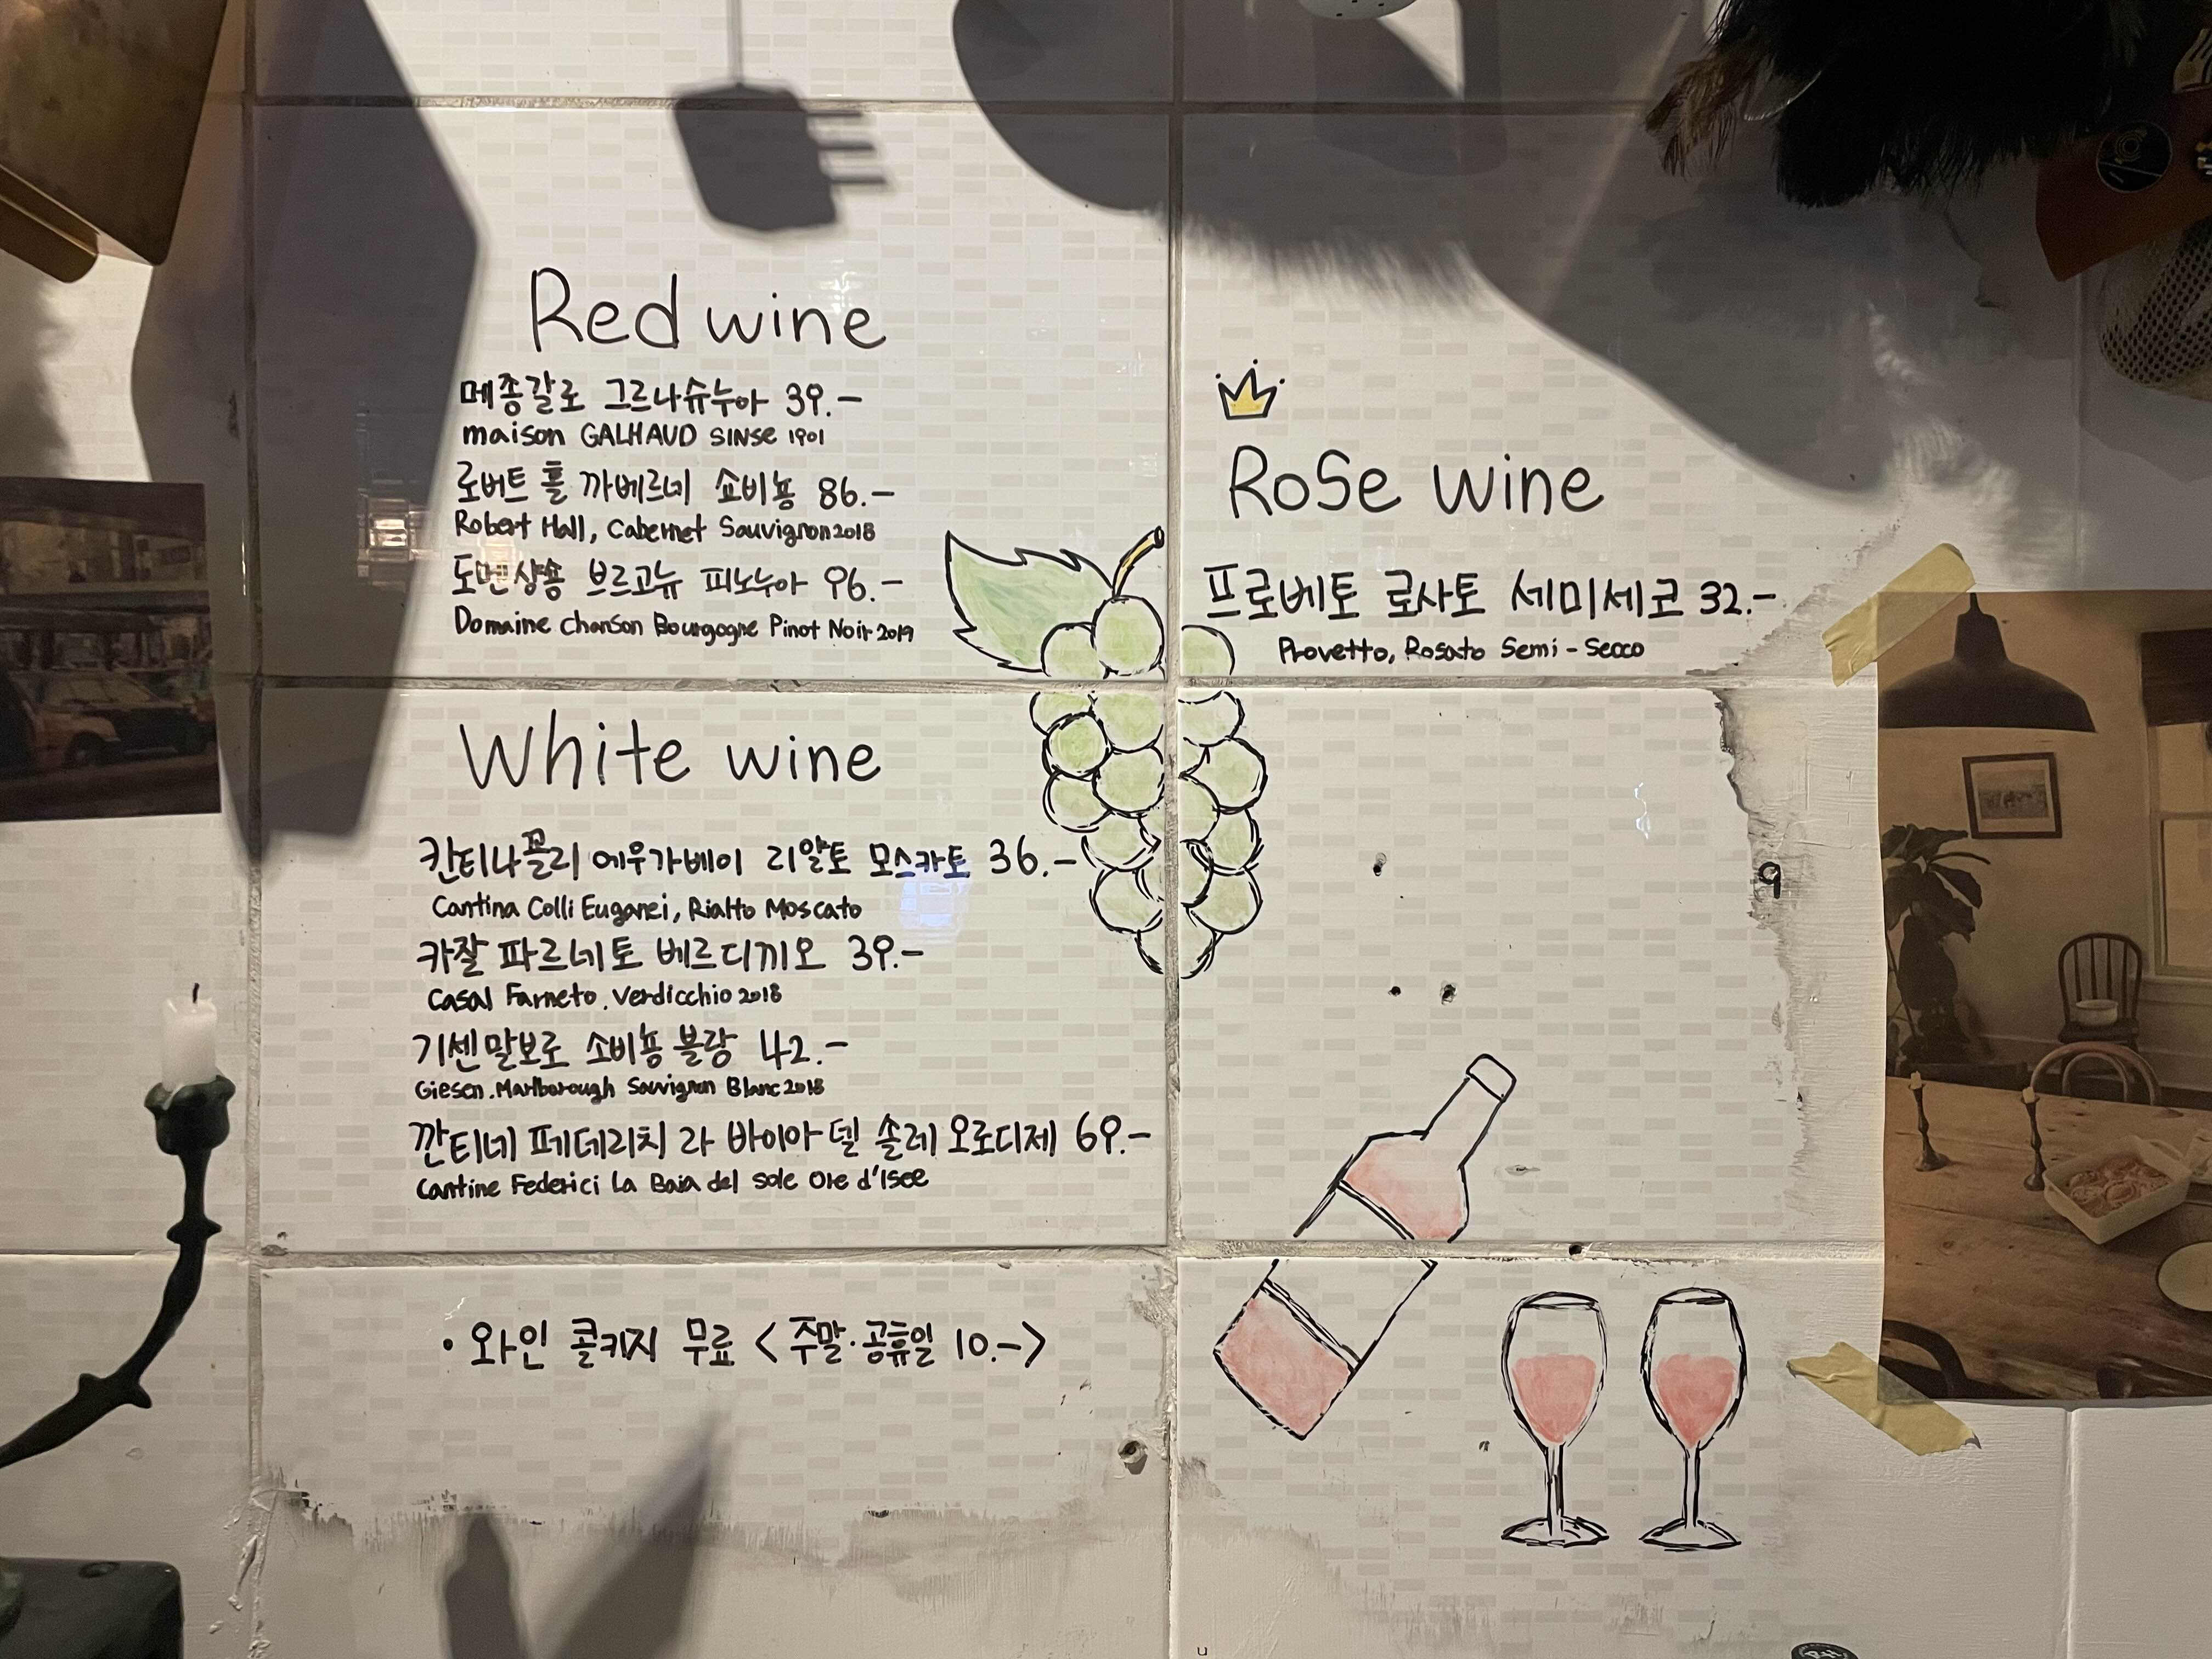 Red wine
메종갈로 그르나슈누아 39.-
maison GALHAUD SINSE 1901
로버트 홀 까베르네 쇼비뇽 86.-
Robert Hall, Cabernet Sauvignon 2018
도멘샹송 브르고뉴 피노누아 96.-
Domaine chanson Bourgogne Pinot Noir 2019
RoSe wine
프로베토 로사토 세미세코 32.-
Provetto, Rosato Semi - Secco
White wine
칸티나꼴리 에우가베이 리알토 모스카토 36.-
Cantina Colli Euganei, Rialto Moscato
카잘 파르네토 베르디끼오 39.-
Casal Farneto. Verdicchio 2018
기센 말보로 소비뇽 블랑 42.-
Giesen. Marlborough Sauvignon Blanc 2018
깐티네 페데리치 라 바이아 델 솔레 오로디제 69.-
Cantine Federici La Baia del sole Oro d'Isee
• 와인 콜키지 무료 < 주말·공휴일 10.->
9